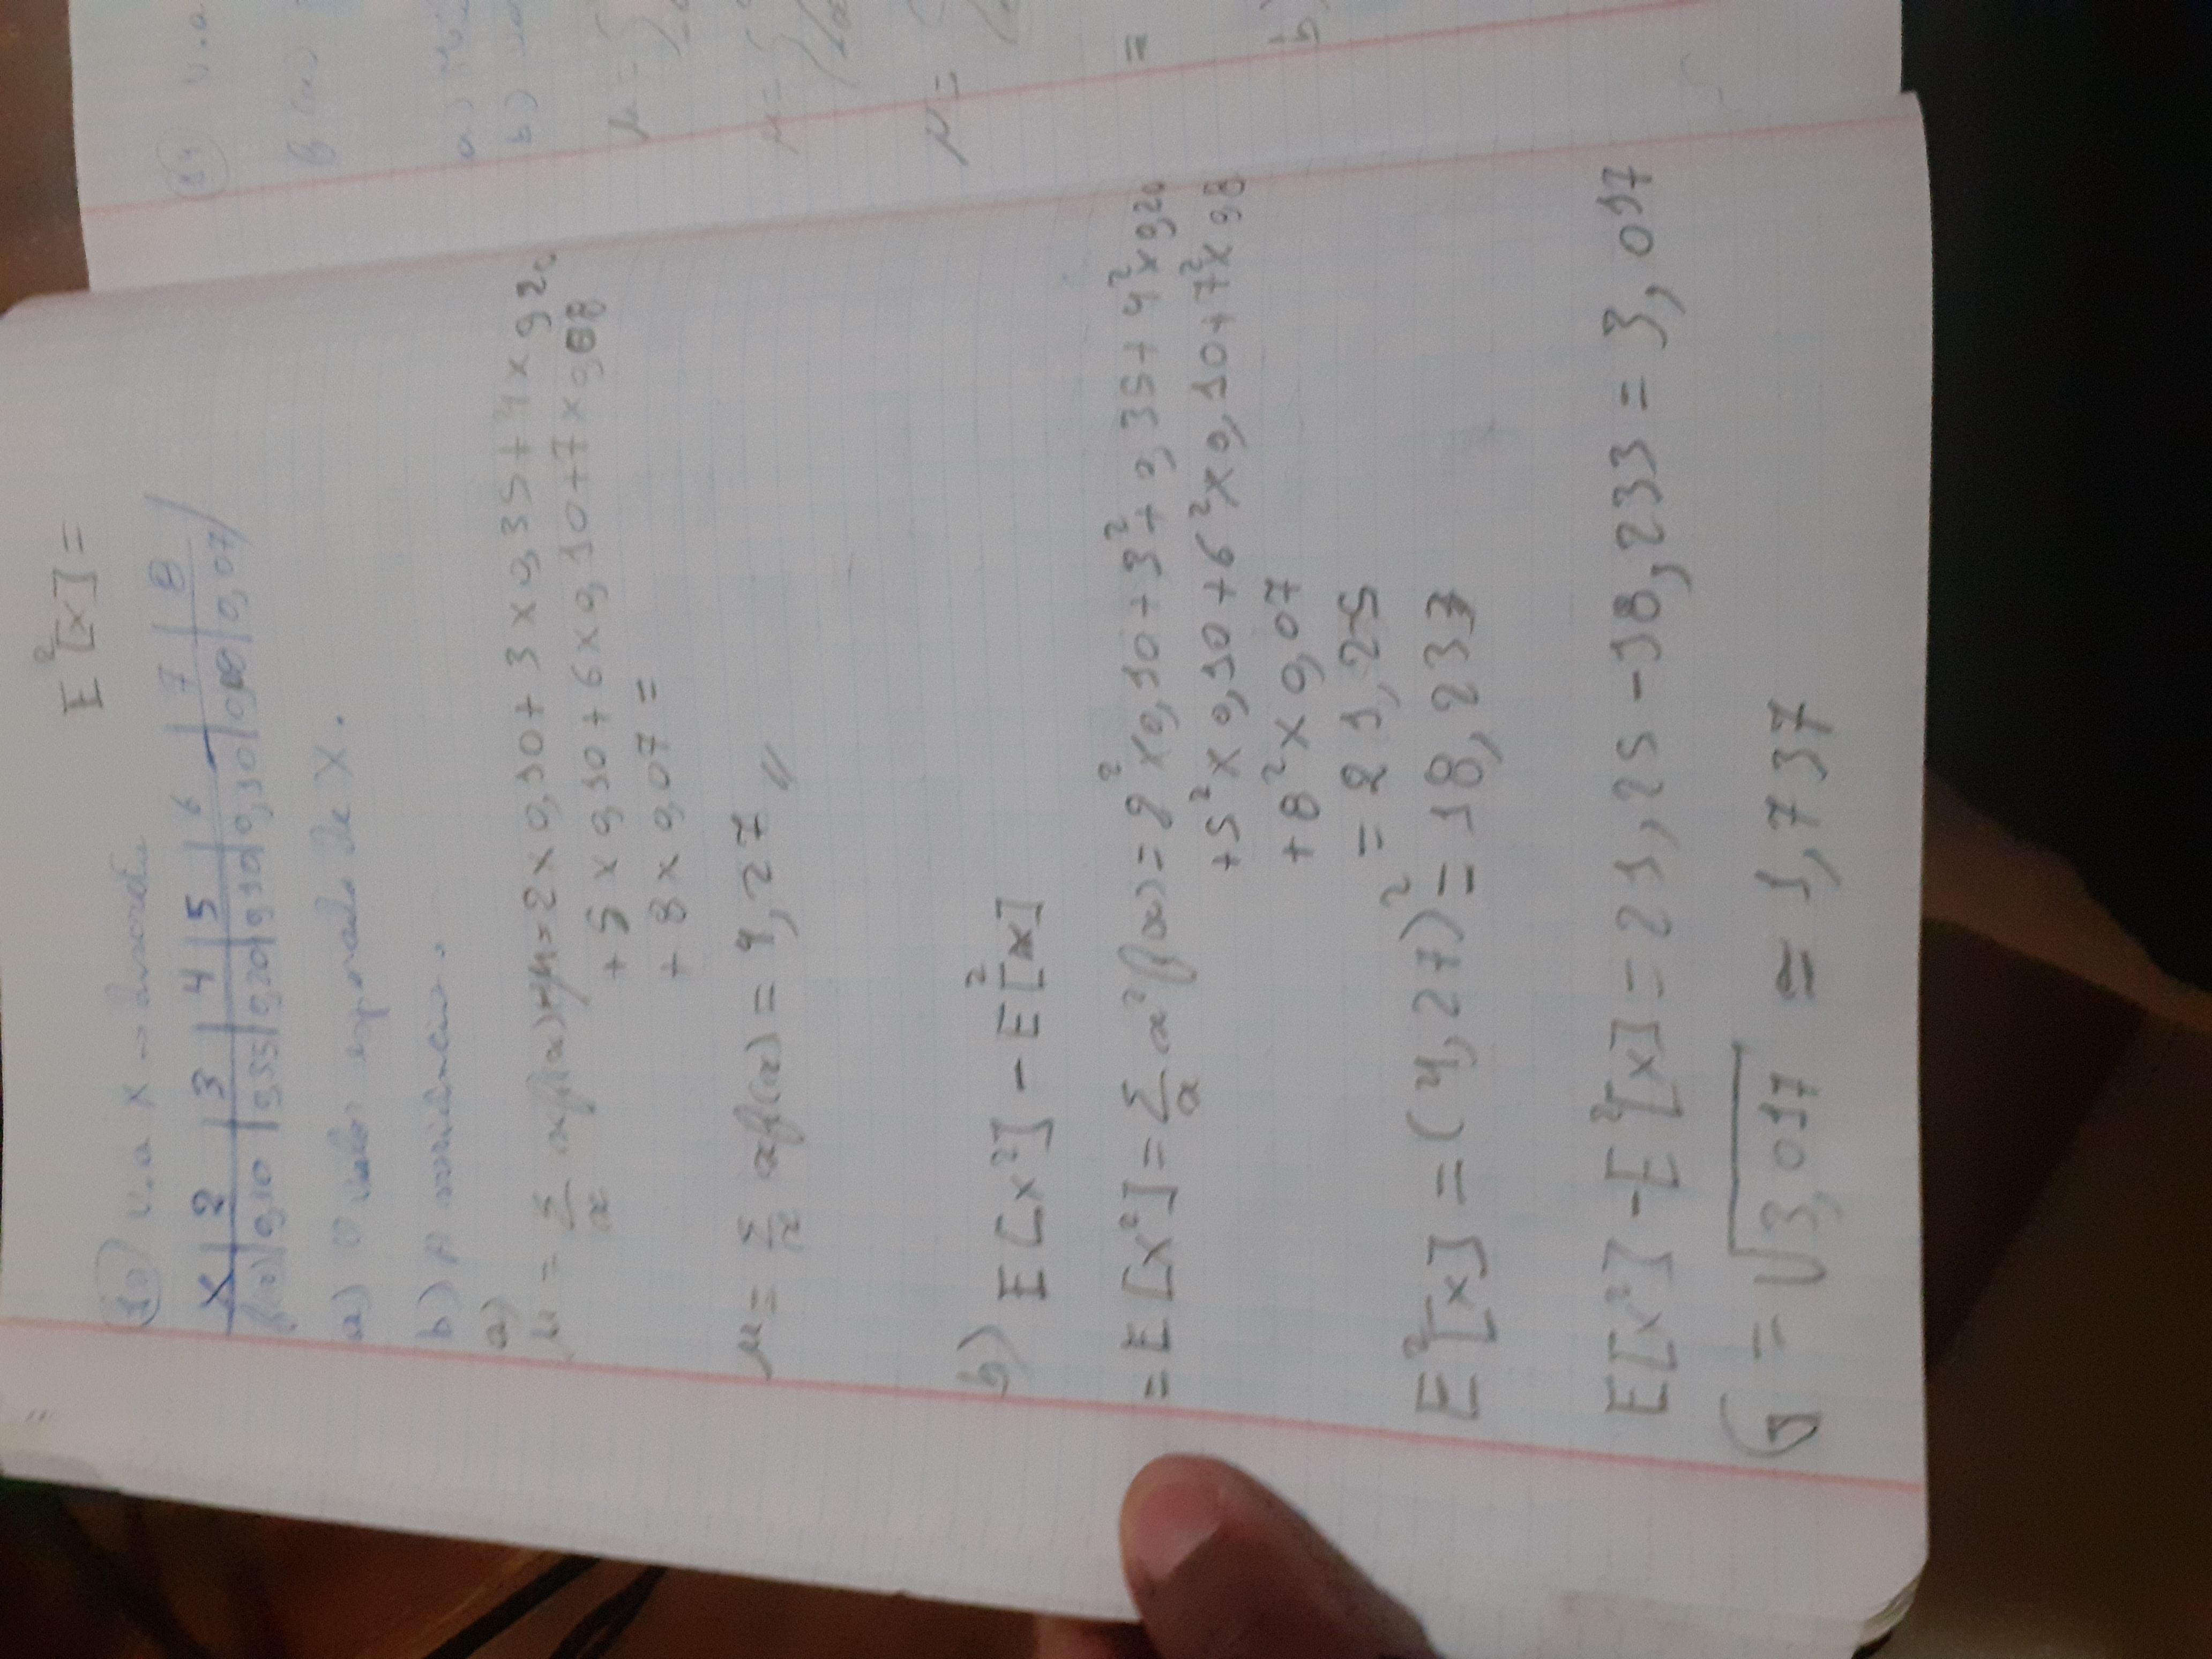 E²[x] =
10) v.a X → discreta
X | 2 | 3 | 4 | 5 | 6 | 7 | 8
f(x) | 0,10 | 0,35 | 0,20 | 0,10 | 0,10 | 0,08 | 0,07
a) O valor esperado de X.
b) A variância.
a)
μ = Σ x f(x) = 2 x 0,10 + 3 x 0,35 + 4 x 0,20
x
+ 5 x 0,10 + 6 x 0,10 + 7 x 0,08
+ 8 x 0,07 =
μ = Σ x f(x) = 4,27 //
x
b) E[x²] - E²[x]
= E[x²] = Σ x² f(x) = 2² x 0,10 + 3² + 0,35 + 4² x 0,20
x
+ 5² x 0,10 + 6² x 0,10 + 7² x 0,8
+ 8² x 0,07
= 21,25
E²[x] = (4,27)² = 18,233
E[x²] - E²[x] = 21,25 - 18,233 = 3,017
σ = √3,017 = 1,737
v.a
f(x)
a)
b)
μ =
μ =
μ =
=
b